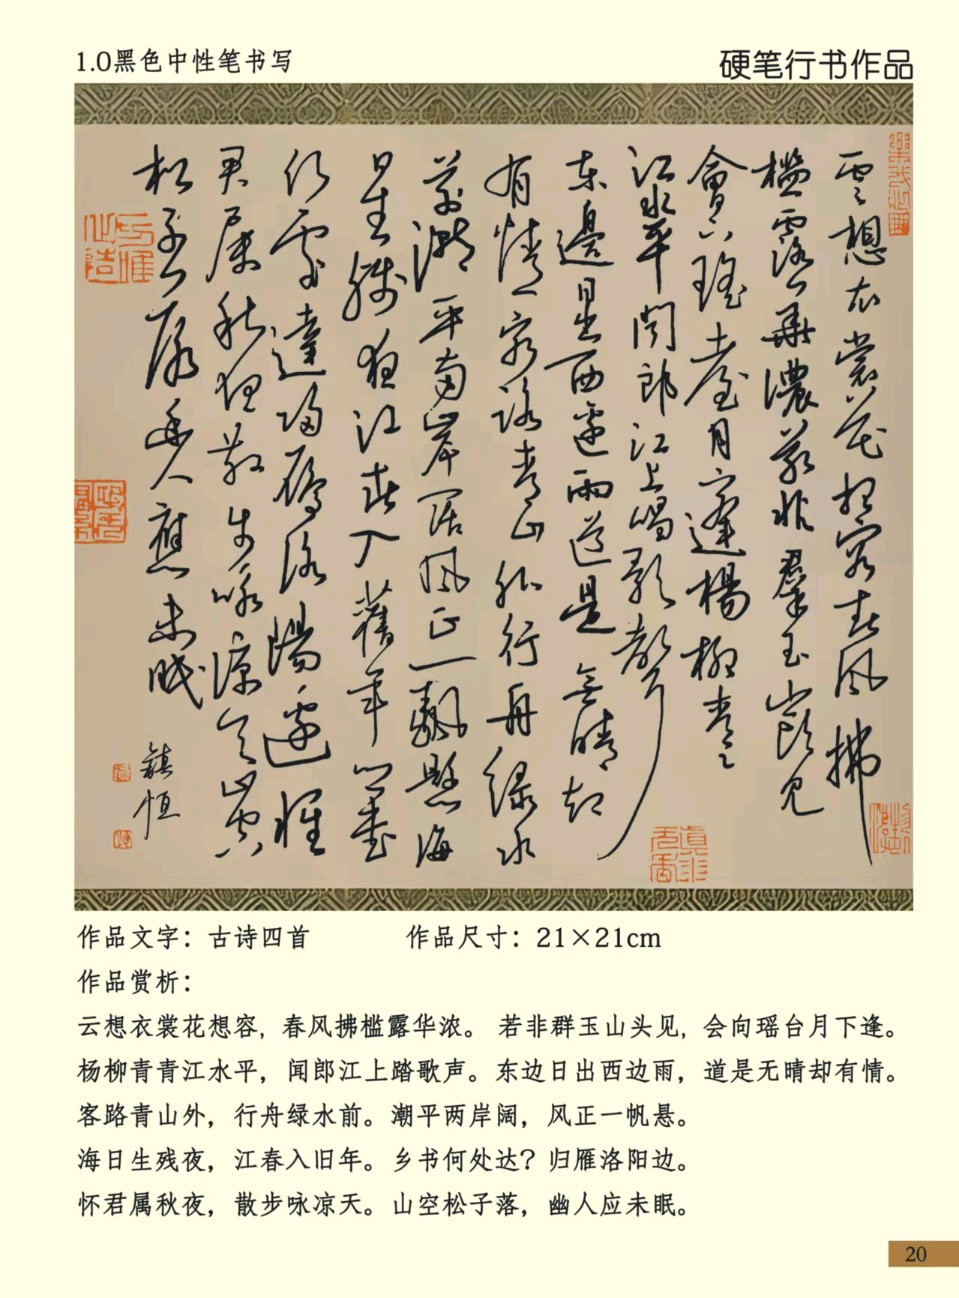 1.0黑色中性笔书写
硬笔行书作品
雲想衣裳花想容春風拂
檻露華濃若非羣玉山頭見
會向瑤臺月下逢楊柳青青
江水平聞郎江上唱歌聲
東邊日出西邊雨道是無晴却
有情客路青山外行舟綠水
前潮平兩岸闊風正一颿懸海
日生殘夜江春入舊年鄉書
何處達歸雁洛陽邊懷
君屬秋夜散步詠涼天山空
松子落幽人應未眠
鎮恒
作品文字：古诗四首 作品尺寸：21×21cm
作品赏析：
云想衣裳花想容，春风拂槛露华浓。 若非群玉山头见，会向瑶台月下逢。
杨柳青青江水平，闻郎江上踏歌声。东边日出西边雨，道是无晴却有情。
客路青山外，行舟绿水前。潮平两岸阔，风正一帆悬。
海日生残夜，江春入旧年。乡书何处达？归雁洛阳边。
怀君属秋夜，散步咏凉天。山空松子落，幽人应未眠。
20